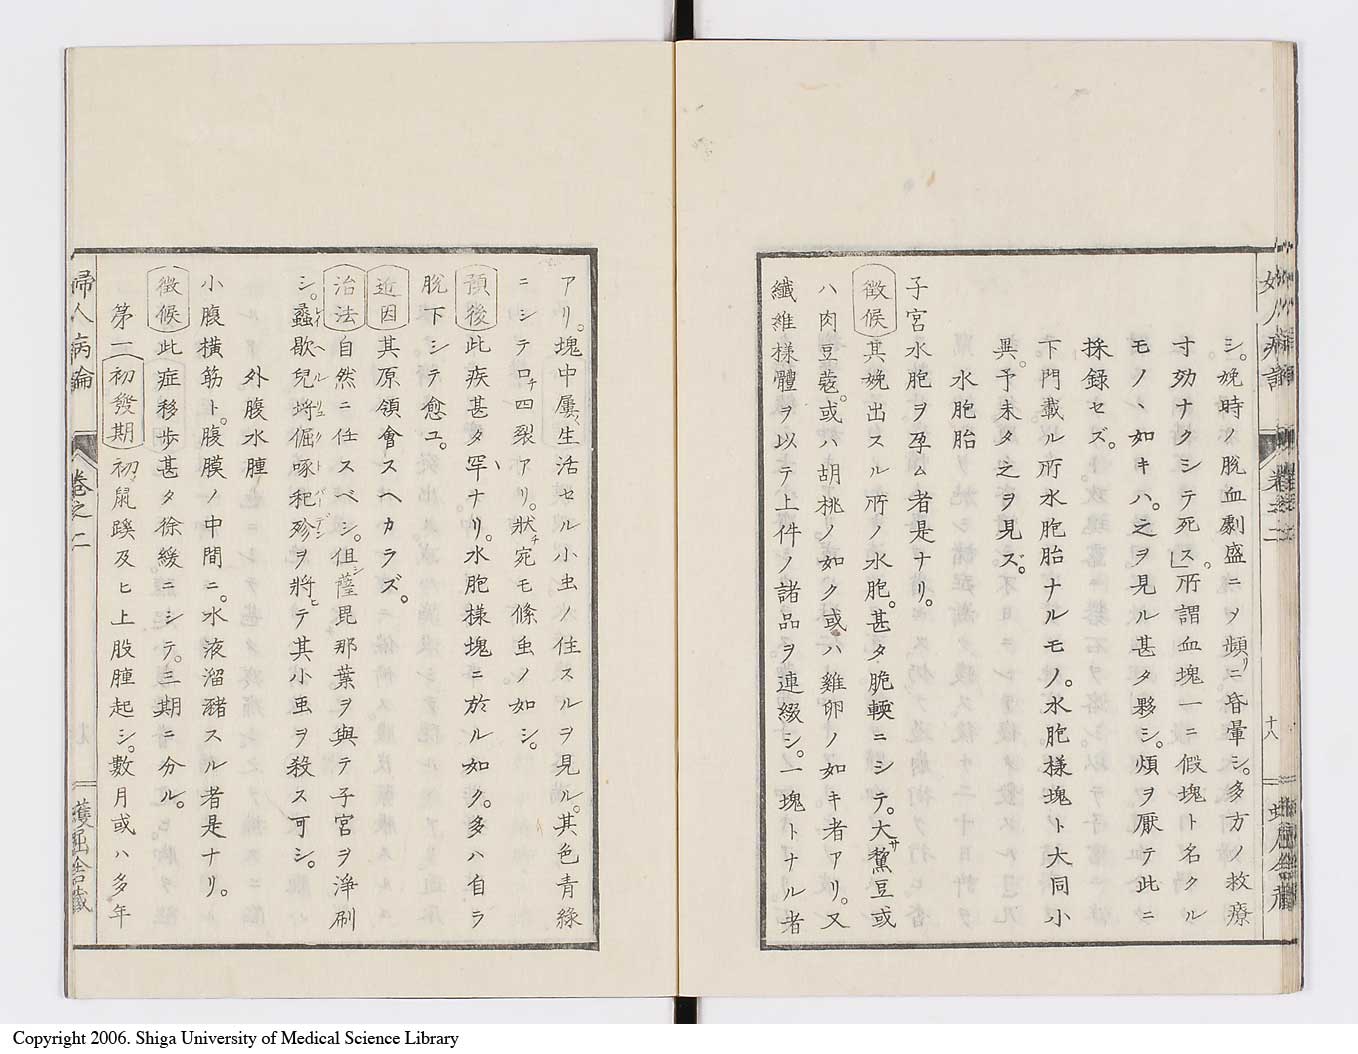 シ。娩時ノ脫血劇盛ニヲ頻リニ昏暈シ。多方ノ救療
寸効ナクシテ死ス」。所謂血塊一ニ假塊ト名クル
モノヽ如キハ。之ヲ見ル甚タ夥シ。煩ヲ厭テ此ニ
採錄セズ。
下門載ル所水胞胎ナルモノ。水胞樣塊ト大同小
異。予未タ之ヲ見ズ。
水胞胎
子宮水胞ヲ孕ム者是ナリ。
徵候 其娩出スル所ノ水胞。甚タ脆輭ニシテ。大サ䅽豆或
ハ肉豆蔲。或ハ胡桃ノ如ク或ハ雞卵ノ如キ者アリ。又
纖維樣體ヲ以テ上件ノ諸品ヲ連綴シ。一塊トナル者
婦人病論 卷之二 十八
アリ。塊中屢〻生活セル小虫ノ住スルヲ見ル。其色青綠
ニシテロチ四裂アリ。狀チ宛モ條虫ノ如シ。
預後 此疾甚タ罕ナリ。水胞樣塊ニ於ル如ク。多ハ自ラ
脫下シテ愈ユ。
近因 其原領會スヘカラズ。
治法 自然ニ任スベシ。但シ蕯毘那葉ヲ與テ子宮ヲ淨刷
シ。蠡歇兒埓倔啄秅殄ヲ將ヒテ其小虫ヲ殺ス可シ。
外腹水腫
小腹橫筋ト。腹膜ノ中間ニ。水液溜瀦スル者是ナリ。
徵候 此症移步甚タ徐緩ニシテ。三期ニ分ル。
第一 初發期 初ハ鼠蹊及ヒ上股腫起シ。數月或ハ多年
婦人病論 卷之二 蠖屈舍藏
Copyright 2006. Shiga University of Medical Science Library